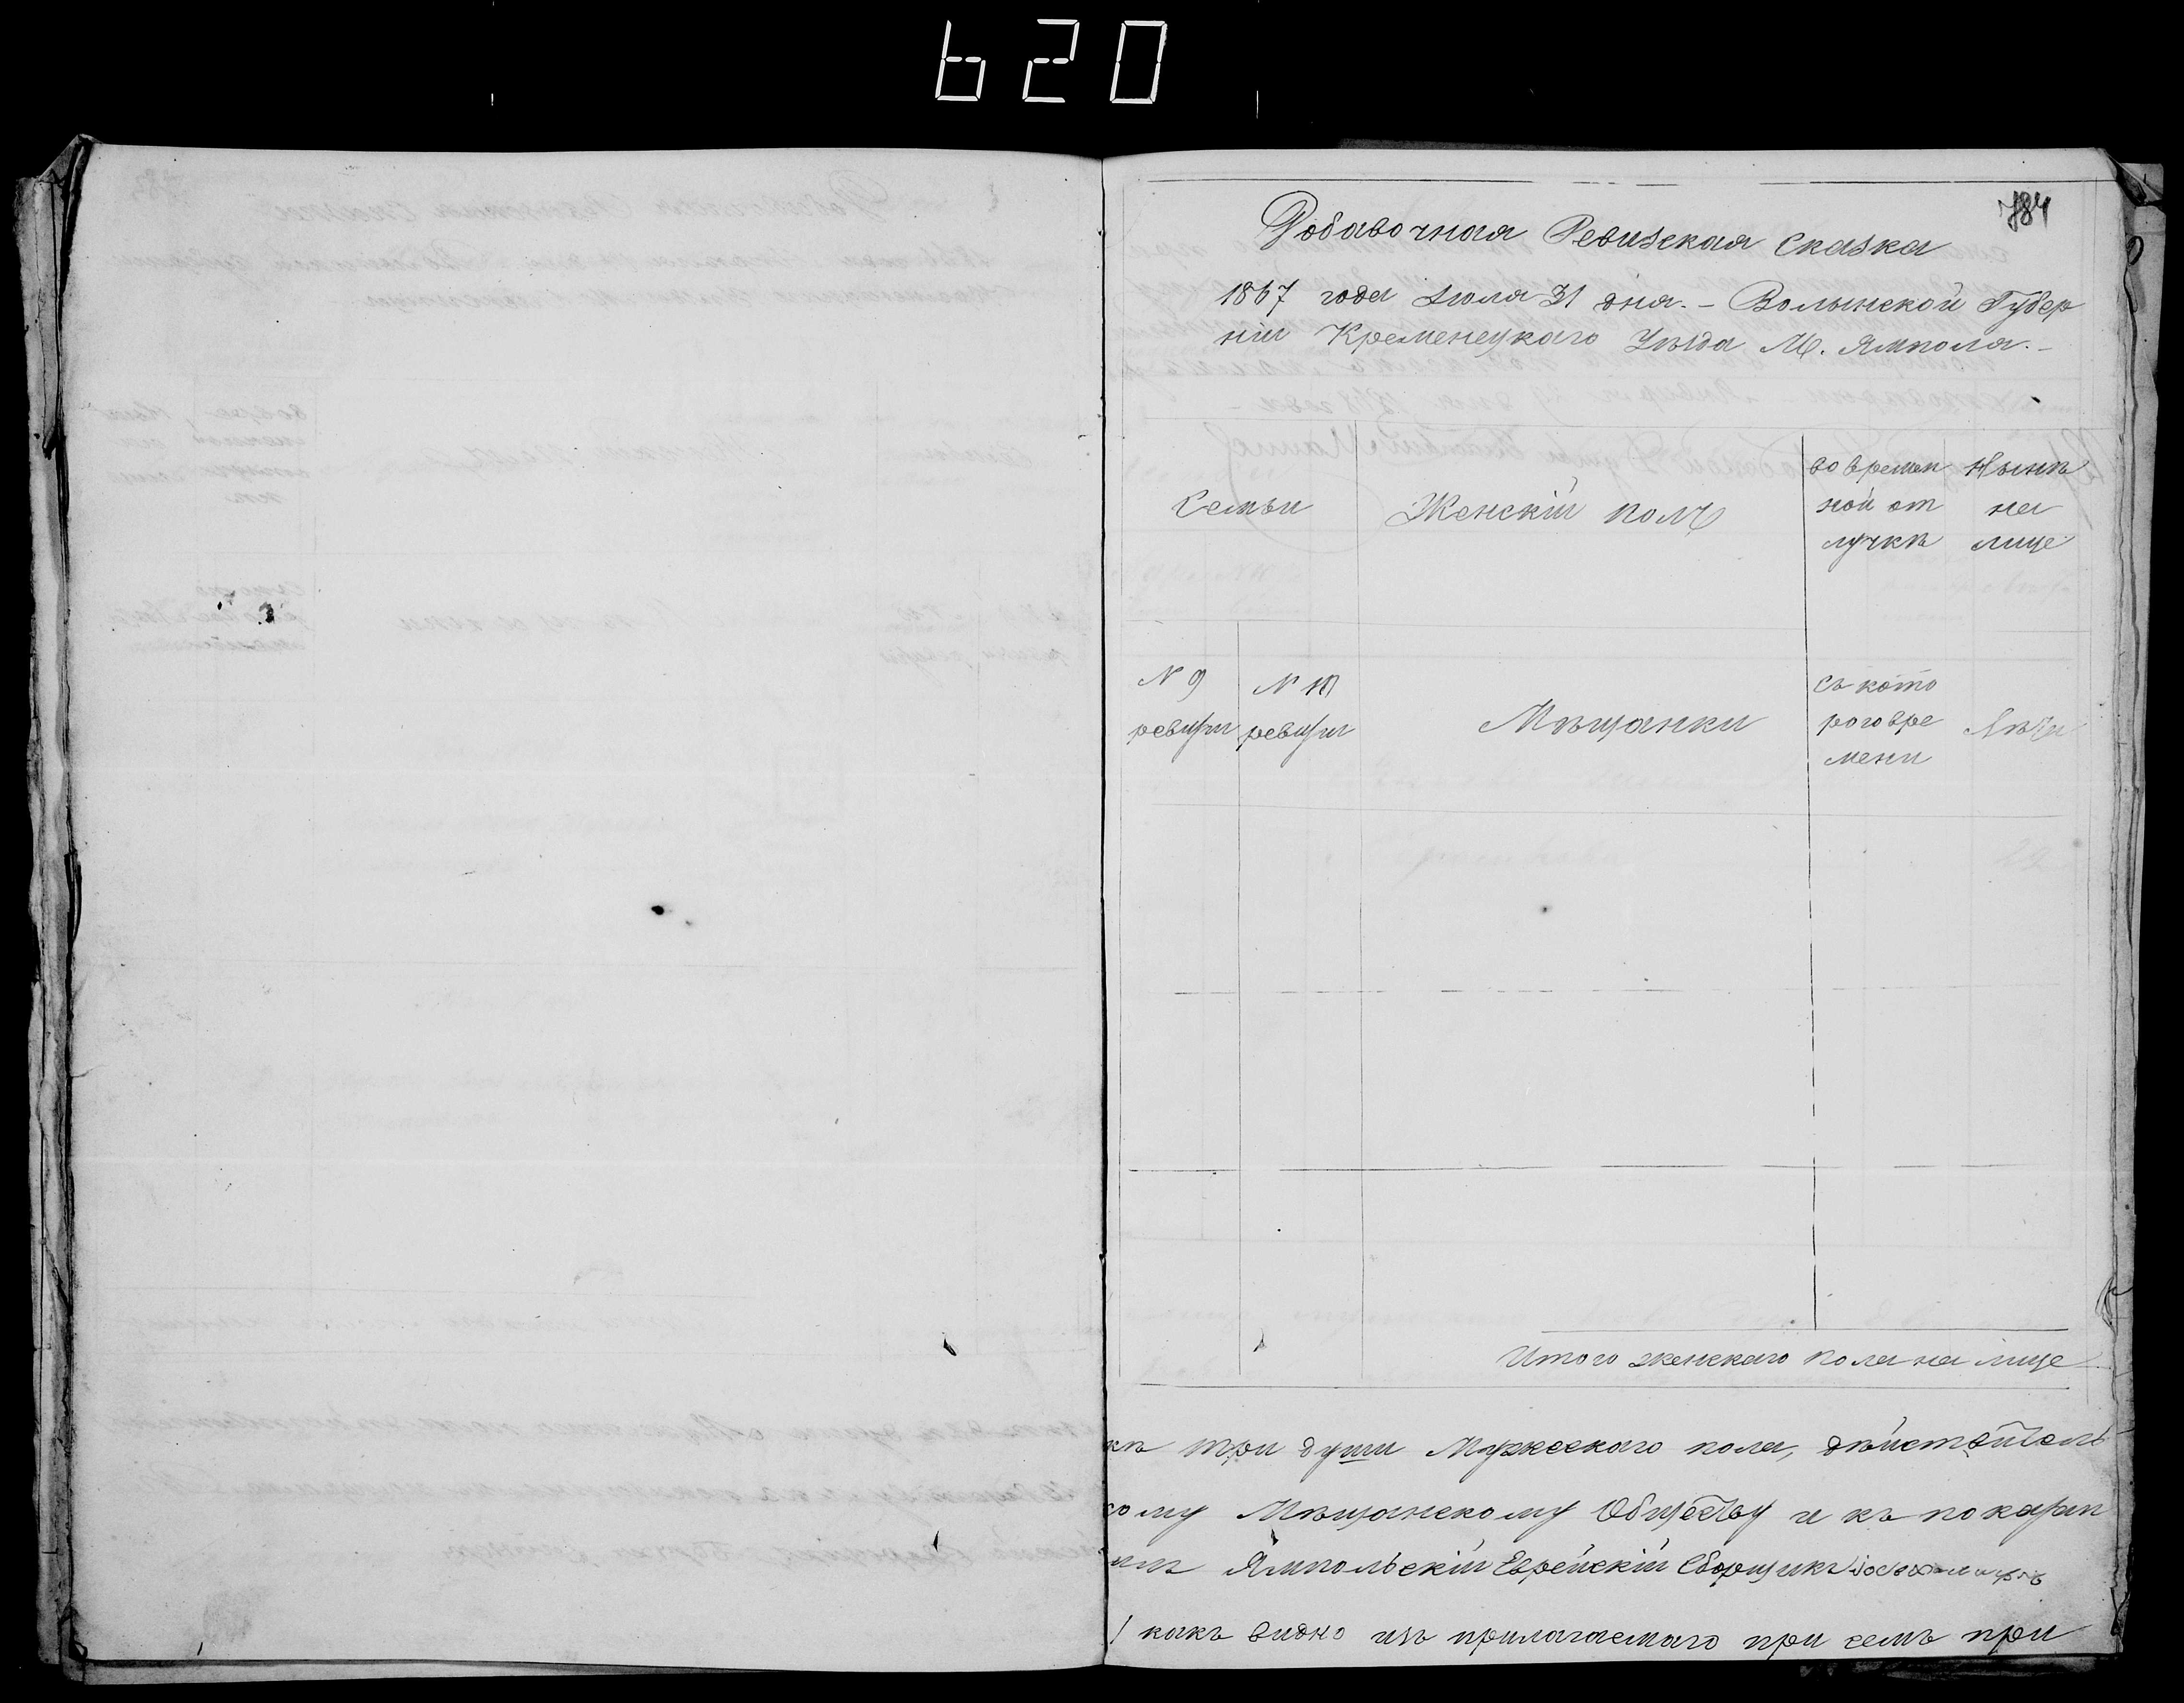 620
784
Добавочная Ревизская Сказка
1867 года Июля 31 дня. – Волынской Губер
ніи Кременецкаго Уѣзда М. Ямполя. –
Семьи
Женскій полъ
во времен
ной от
лучкѣ
Нынѣ
на
лице
N 9
ревизіи
N 10
ревизіи
Мѣщанки
съ кото
раго вре
мени
Лѣта
Итого женскаго пола на лице
кѣ три души Мужескаго пола, дѣйствитель
кому Мѣщанскому Обществу и къ показан
имъ Ямпольскій Еврейскій Сборщикъ
какъ видно изъ прилагаемаго при семъ при